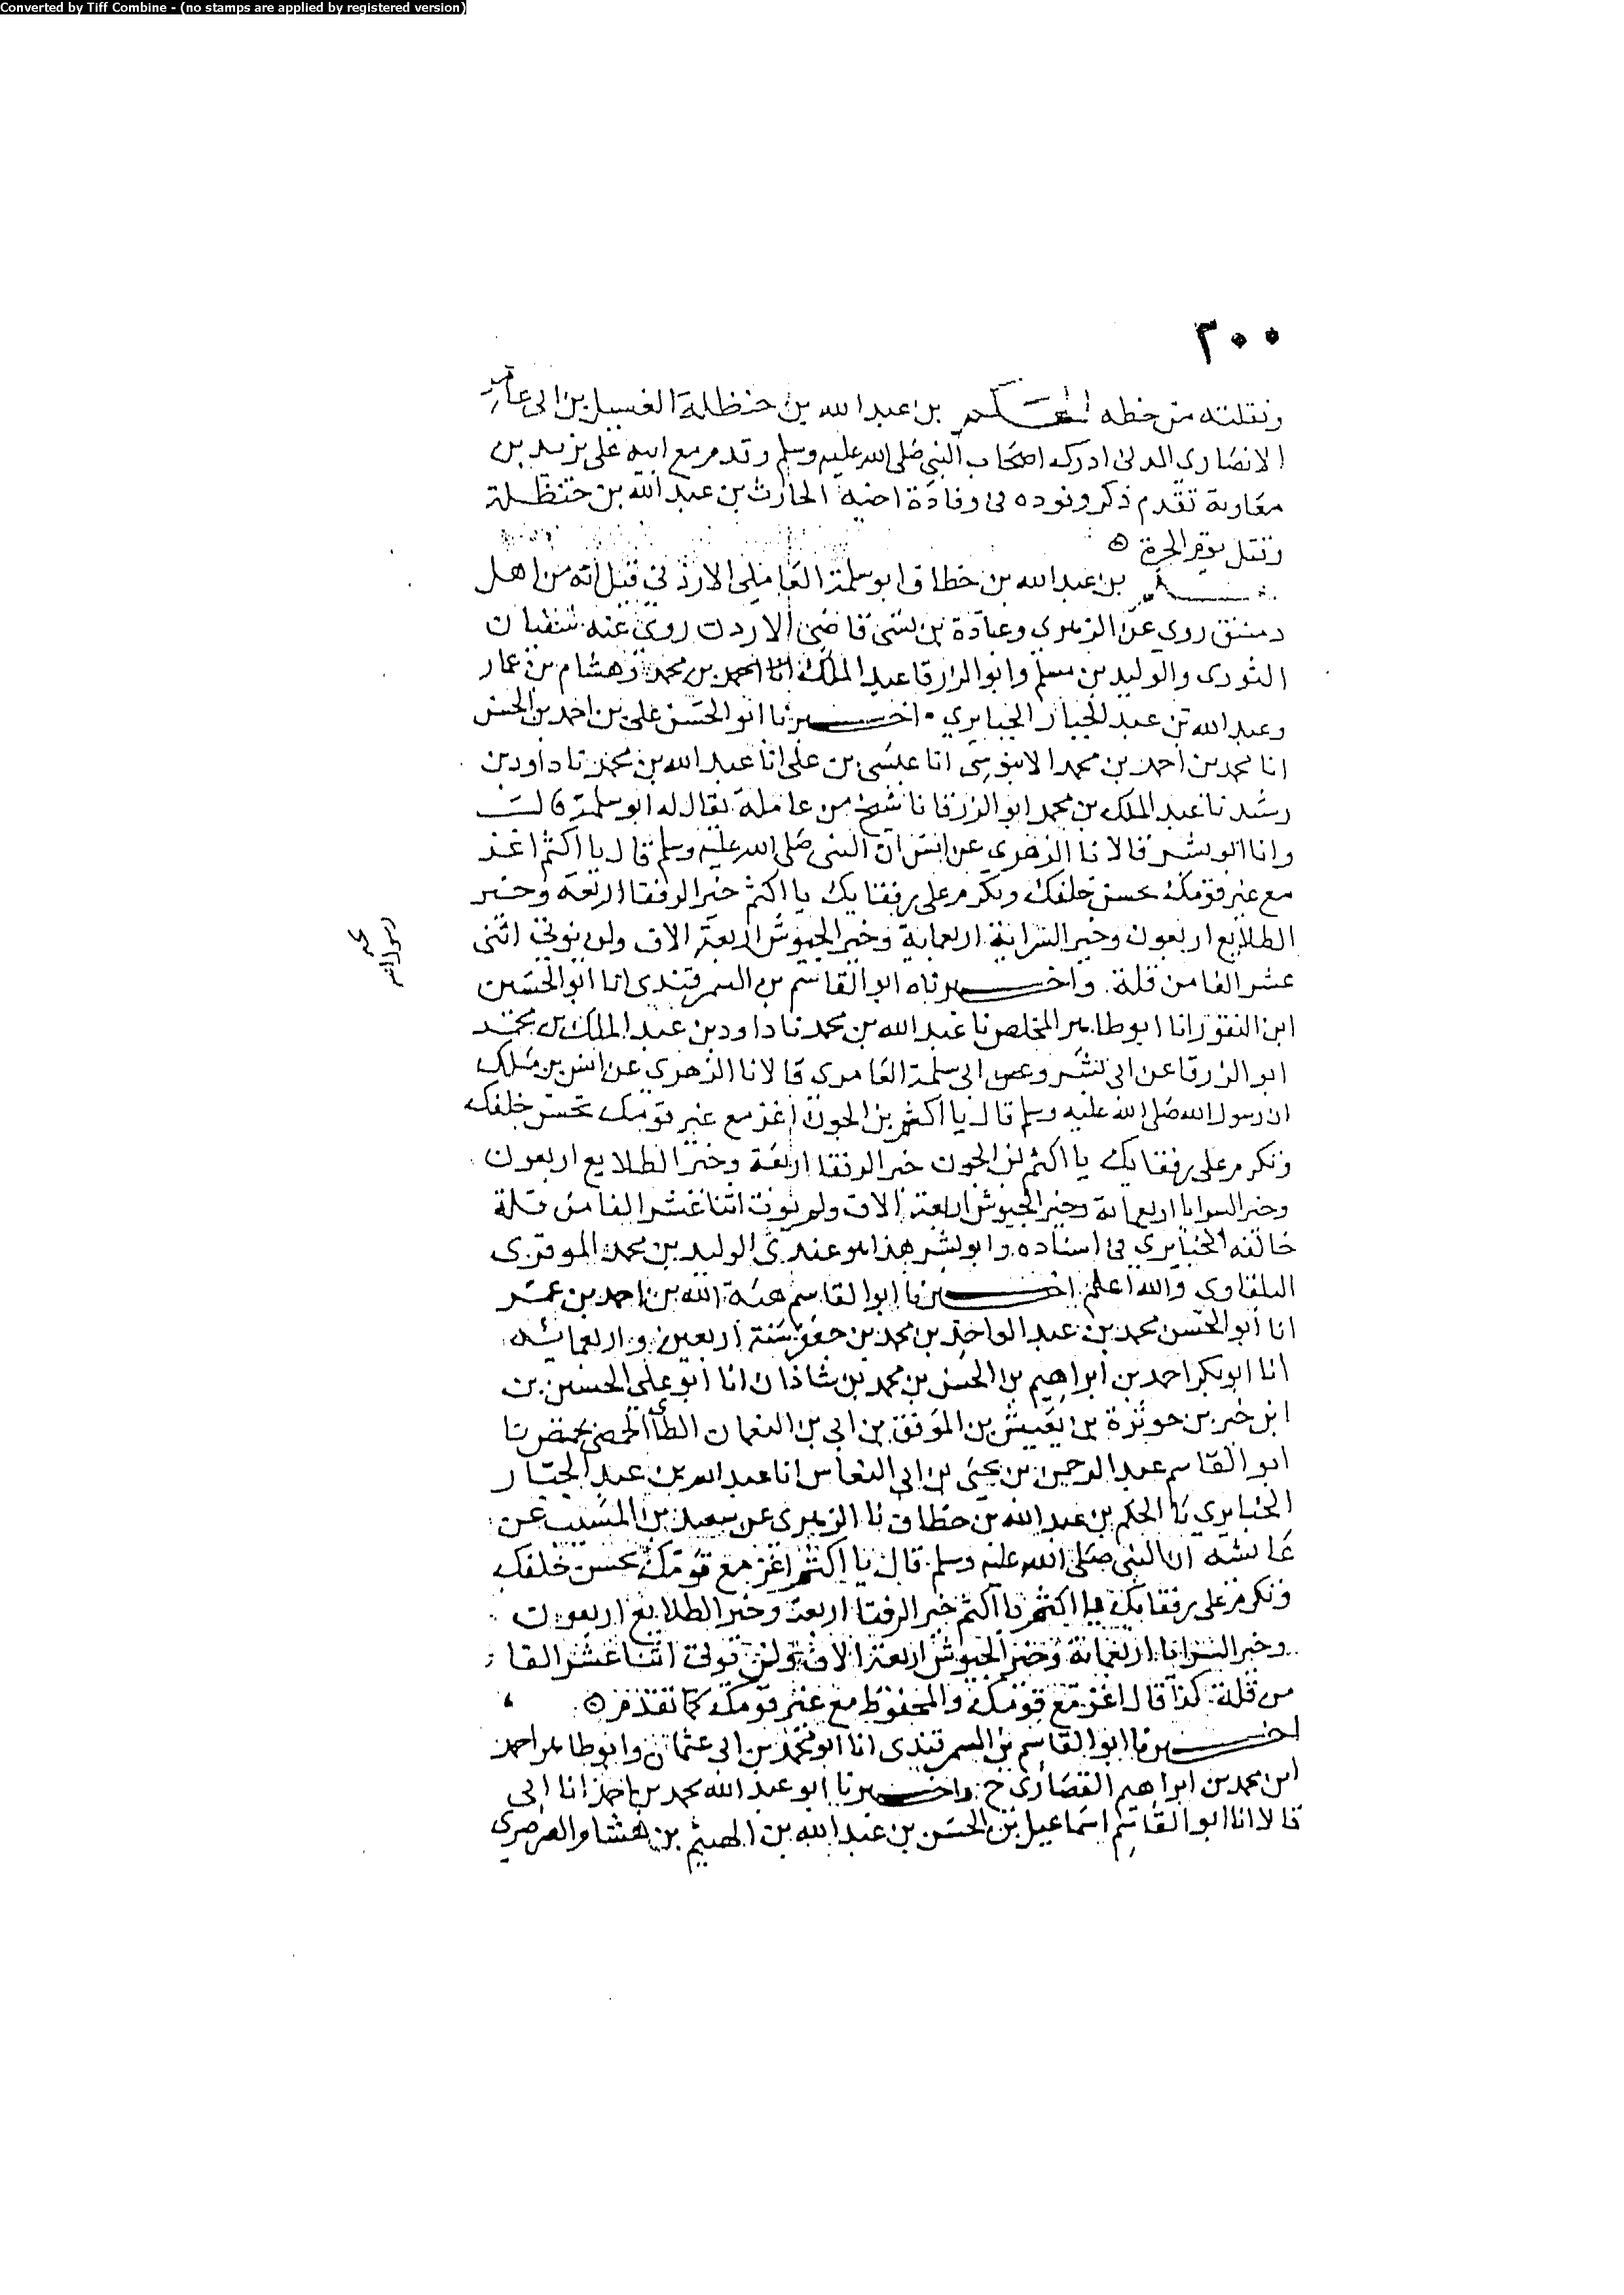 Converted by Tiff Combine - (no stamps are applied by registered version)
٣٠٠
ونقلته من خطه الحكم بن عبد الله بن حنظلة الغسيل بن ابى عامر
الانصاري المدنى ادرك اصحاب النبي صلى الله عليه وسلم وقدم مع ابيه على يزيد بن
معاوية تقدم ذكر وفوده فى وفادة اخيه الحارث بن عبد الله بن حنظلة
وقتل يوم الحرة
بن عبد الله بن خطاف ابو سلمة العاملى الاردني قيل انه من اهل
دمشق روى عن الزهري وعبادة بن نسى قاضى الاردن روى عنه سفيان
الثورى والوليد بن مسلم وابو الزرقا عبد الملك بن محمد وهشام بن عمار
وعبد الله بن عبد الجبار الخبايري اخبرنا ابو الحسن على بن احمد بن الحسن
انا محمد بن احمد بن محمد الابنوسى انا عيسى بن على انا عبد الله بن محمد نا داود بن
رشيد نا عبد الملك بن محمد ابو الزرقا نا شيخ من عاملة يقال له ابو سلمة قال
وانا ابو بشر قالا نا الزهري عن انس ان النبى صلى الله عليه وسلم قال يا اكثم اغز
مع غير قومك يحسن خلقك وتكرم على رفقايك يا اكثم خير الرفقا اربعة وخير
الطلايع اربعون وخير السرايه اربعماية وخير الجيوش اربعة الاف ولن يوتى اثنى
عشر الفا من قلة واخبرناه ابو القاسم بن السمرقندى انا ابو الحسين
ابن النقور انا ابو طاهر المخلص نا عبد الله بن محمد نا داود بن عبد الملك بن محمد
ابو الزرقا عن ابى بشر وعن ابى سلمة العامرى قالا نا الزهري عن انس بن ملك
ان رسول الله صلى الله عليه وسلم قال يا اكثم بن الجون اغز مع غير قومك يحسن خلقك
وتكرم على رفقايك يا اكثم بن الجون خير الرفقا اربعة وخير الطلايع اربعون
وخير السرايا اربعماية وخير الجيوش اربعة الاف ولن يوتى اثنا عشر الفا من قلة
خالفه الخبايري فى اسناده وابو بشر هذا هو عندى الوليد بن محمد الموقرى
البلقاوي والله اعلم اخبرنا ابو القاسم هبة الله بن احمد بن عمر
انا ابو الحسن محمد بن عبد الواحد بن محمد بن جعفر سنة اربعين واربعمائه
انا ابو بكر احمد بن ابراهيم بن الحسن بن محمد بن شاذان انا ابو على الحسين بن
ابن خير بن حوثرة بن يعيش بن الموفق بن ابى بن النعمان الطائى الحمصى بحمص نا
ابو القاسم عبد الرحمن بن يحيى بن ابى النعاس انا عبد الله بن عبد الجبار
الخبايري نا الحكم بن عبد الله بن خطاف نا الزهرى عن سعيد بن المسيب عن
عايشه ان النبى صلى الله عليه وسلم قال يا اكثم اغز مع قومك يحسن خلقك
وتكرم على رفقايك يا اكثم خير الرفقا اربعة وخير الطلايع اربعون
وخير السرايا اربعماية وخير الجيوش اربعة الاف ولن توتى اثنا عشر الفا
من قلة كذا قال اغز مع قومك والمحفوظ مع غير قومك كما تقدم
اخبرنا ابو القاسم بن السمرقندى انا ابو محمد بن ابى عثمان وابو طاهر احمد
ابن محمد بن ابراهيم القصارى ح واخبرنا ابو عبد الله محمد بن احمد انا ابى
قالا انا ابو القاسم اسماعيل بن الحسن بن عبد الله بن الهيثم بن هشام الصرصرى